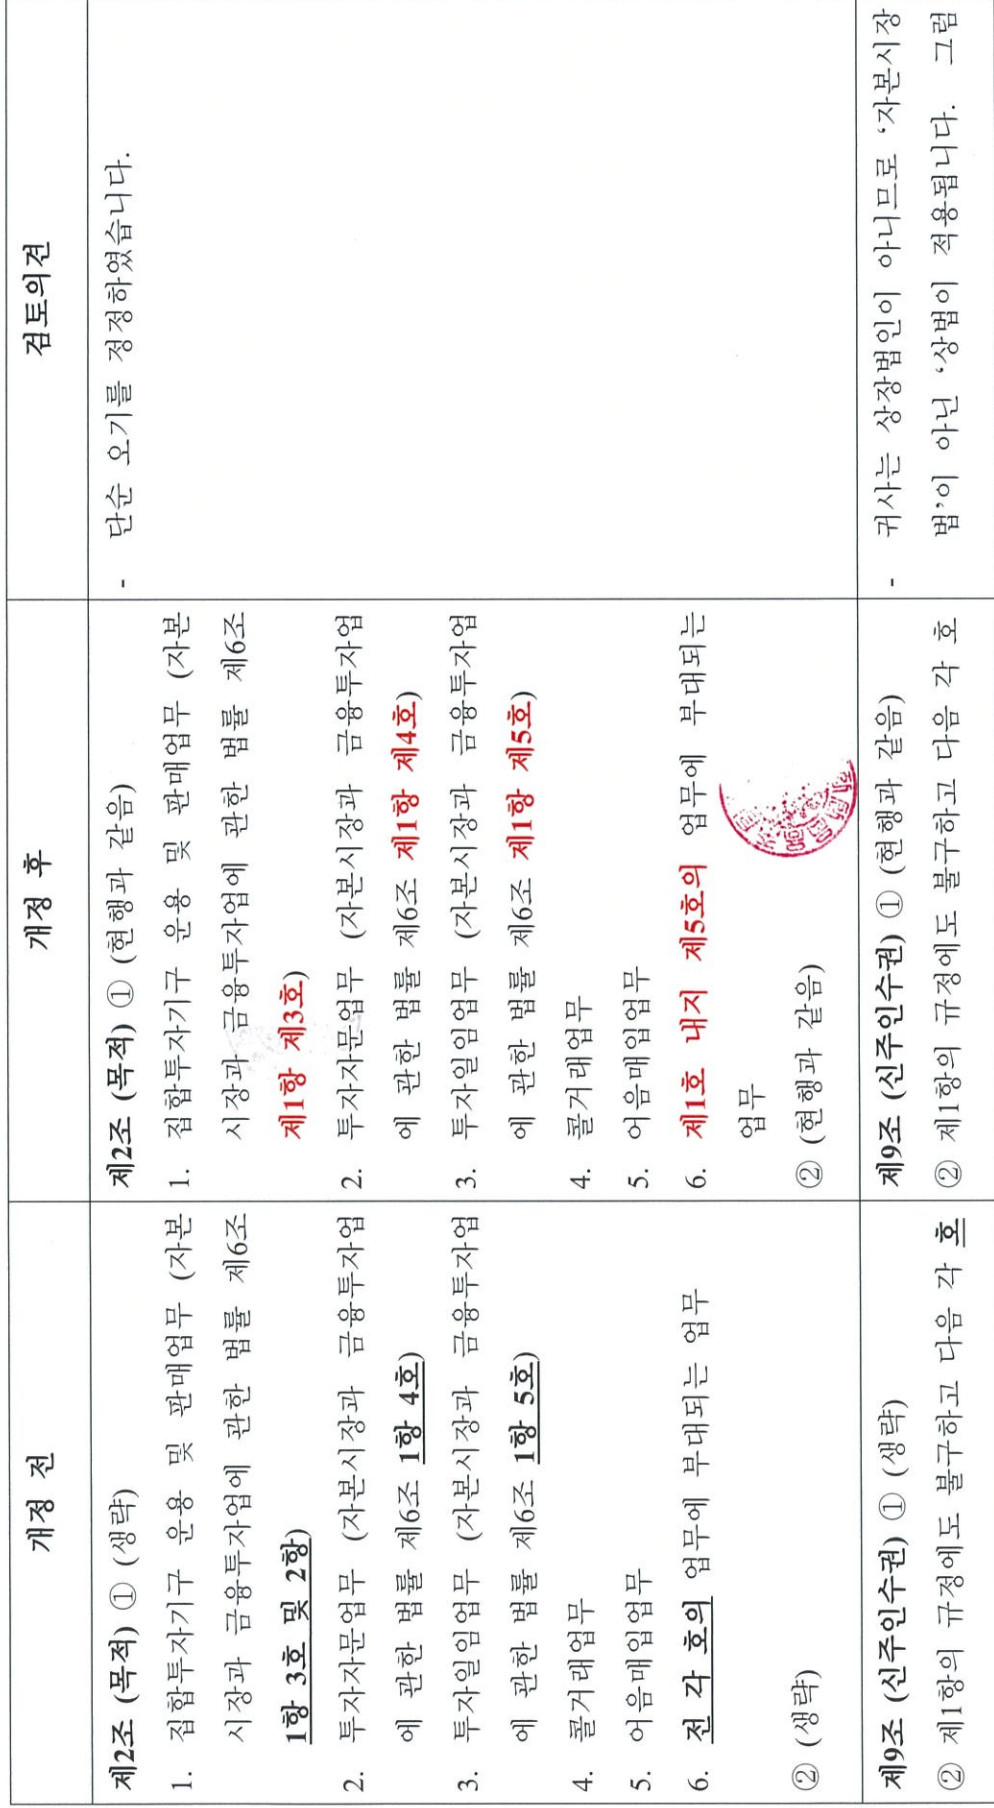 개정 전
개정 후
검토의견
제2조 (목적) ① (생략)
1. 집합투자기구 운용 및 판매업무 (자본
시장과 금융투자업에 관한 법률 제6조
1항 3호 및 2항)
2. 투자자문업무 (자본시장과 금융투자업
에 관한 법률 제6조 1항 4호)
3. 투자일임업무 (자본시장과 금융투자업
에 관한 법률 제6조 1항 5호)
4. 콜거래업무
5. 어음매입업무
6. 전 각 호의 업무에 부대되는 업무
② (생략)
제2조 (목적) ① (현행과 같음)
1. 집합투자기구 운용 및 판매업무 (자본
시장과 금융투자업에 관한 법률 제6조
제1항 제3호)
2. 투자자문업무 (자본시장과 금융투자업
에 관한 법률 제6조 제1항 제4호)
3. 투자일임업무 (자본시장과 금융투자업
에 관한 법률 제6조 제1항 제5호)
4. 콜거래업무
5. 어음매입업무
6. 제1호 내지 제5호의 업무에 부대되는
업무
② (현행과 같음)
- 단순 오기를 정정하였습니다.
제9조 (신주인수권) ① (생략)
② 제1항의 규정에도 불구하고 다음 각 호
제9조 (신주인수권) ① (현행과 같음)
② 제1항의 규정에도 불구하고 다음 각 호
- 귀사는 상장법인이 아니므로 ‘자본시장
법’이 아닌 ‘상법이 적용됩니다. 그럼